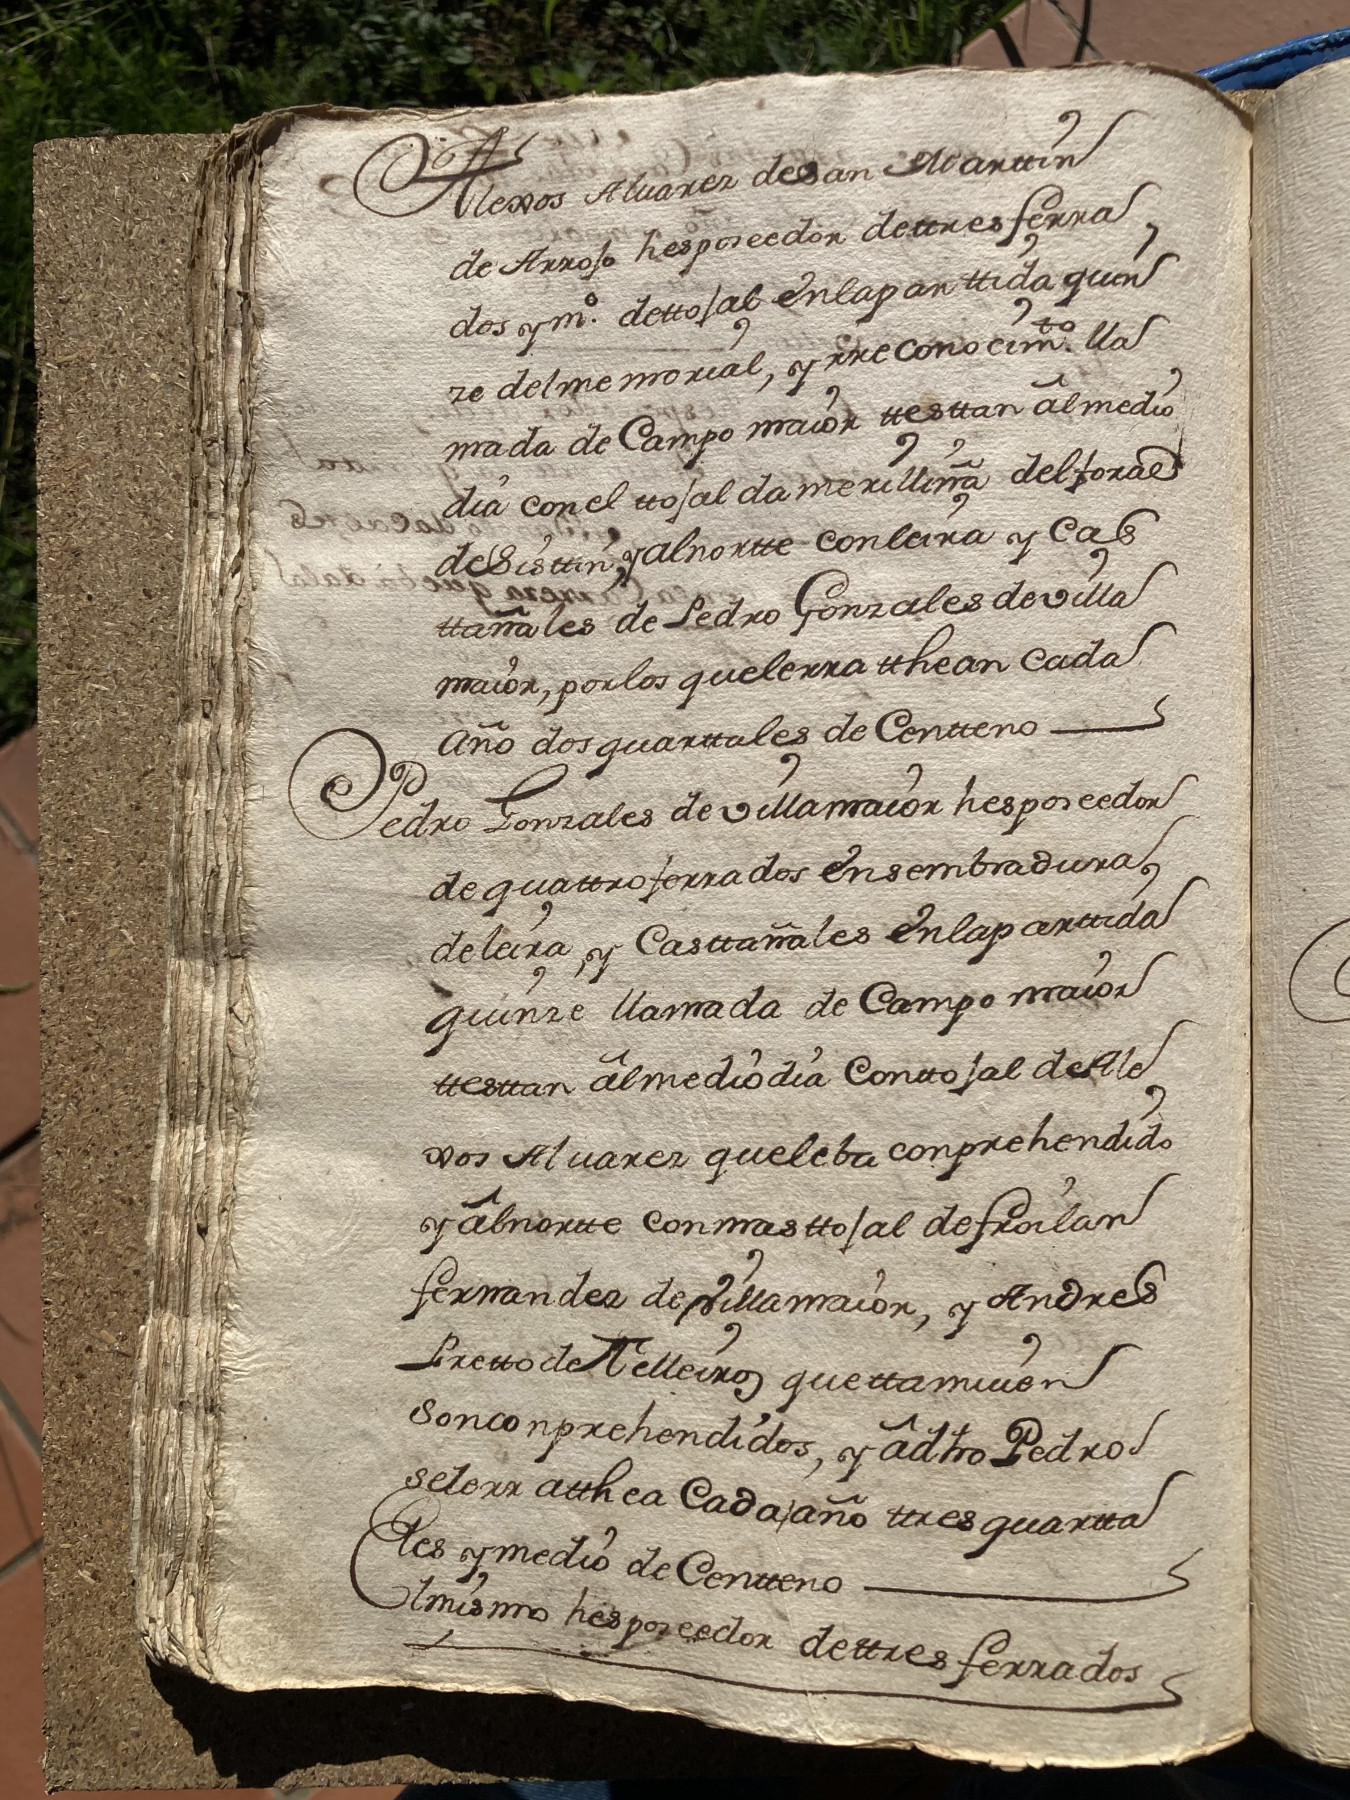 Alexos Alvarez de San Marttin
de Arrojo hes poseedor de ttres ferra
dos y m.º de ttojal en la parttida quin
ze del memorial, y rreconocim.to lla
mada de Campo maior ttesttan âl medio
dia con el ttojal da merilliña del foral
de Sisttin, y al nortte con leira y Cas
ttañales de Pedro Gonzales de villa
maior, por los que le rratthean cada
Año dos quarttales de Centteno
Pedro Gonzales de villamaior hes poseedor
de quattro ferrados en sembradura
de leira, y Casttañales en la parttida
quinze llamada de Campo maior
ttesttan âl medio dia Con ttojal de Ale
xos Alvarez que leba conprehendido
y âl nortte con mas ttojal de froilan
fernandez de villamaior, y Andres
Pretto de Telleiros que ttamvien
son conprehendidos, y â dho Pedro
se le rratthea Cada año ttres quartta
les y medio de Centteno
El mismo hes poseedor de ttres ferrados